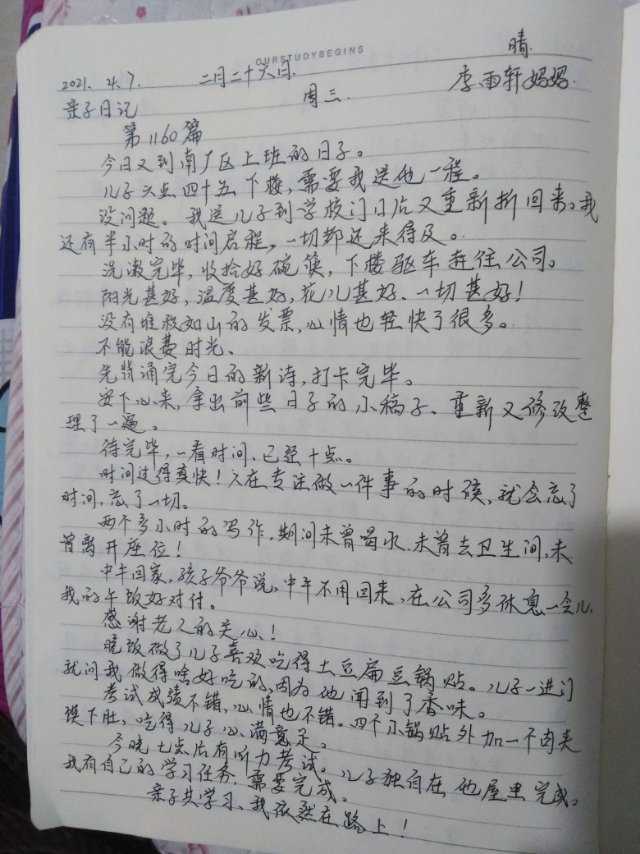 OURSTUDYBEGINS
晴
2021. 4. 7. 二月二十六日. 周三. 李雨轩妈妈
亲子日记
第1160篇
今日又到南厂区上班的日子。
儿子六点四十五下楼，需要我送他一程。
没问题。我送儿子到学校门口后又重新折回来。我
还有半小时的时间启程，一切都还来得及。
洗漱完毕，收拾好碗筷，下楼驱车赶往公司。
阳光甚好，温度甚好，花儿甚好、一切甚好！
没有堆积如山的发票，心情也轻快了很多。
不能浪费时光、
先背诵完今日的新诗，打卡完毕。
安下心来，拿出前些日子的小稿子、重新又修改整
理了一遍。
待完毕，一看时间、已经十点。
时间过得真快！人在专注做一件事的时候，就会忘了
时间，忘了一切。
两个多小时的写作，期间未曾喝水、未曾去卫生间，未
曾离开座位！
中午回家，孩子爷爷说，中午不用回来，在公司多休息一会儿、
我的午饭好对付。
感谢老人的关心！
晚饭做了儿子喜欢吃得土豆扁豆锅贴。儿子一进门
就问我做得啥好吃的，因为他闻到了香味。
考试成绩不错，心情也不错。四个小锅贴外加一个肉夹
馍下肚，吃得儿子心满意足。
今晚七点后有听力考试。儿子独自在他屋里完成。
我有自己的学习任务、需要完成。
亲子共学习、我依然在路上！